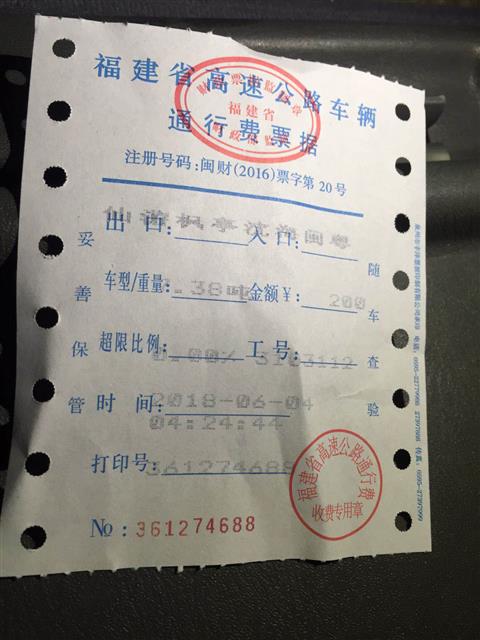 福建省高速公路车辆
通行费票据
福建省
注册号码：闽财(2016)票字第20号
仙游枫亭沈海闽粤
出口： 入口：
车型/重量： .38吨 金额￥： 200
超限比例： 0.00% 工号： 3103112
时间： 2018-06-04
04:24:44
打印号： 361274688
No：361274688
妥善保管
随车查验
福建省高速公路通行费
收费专用章